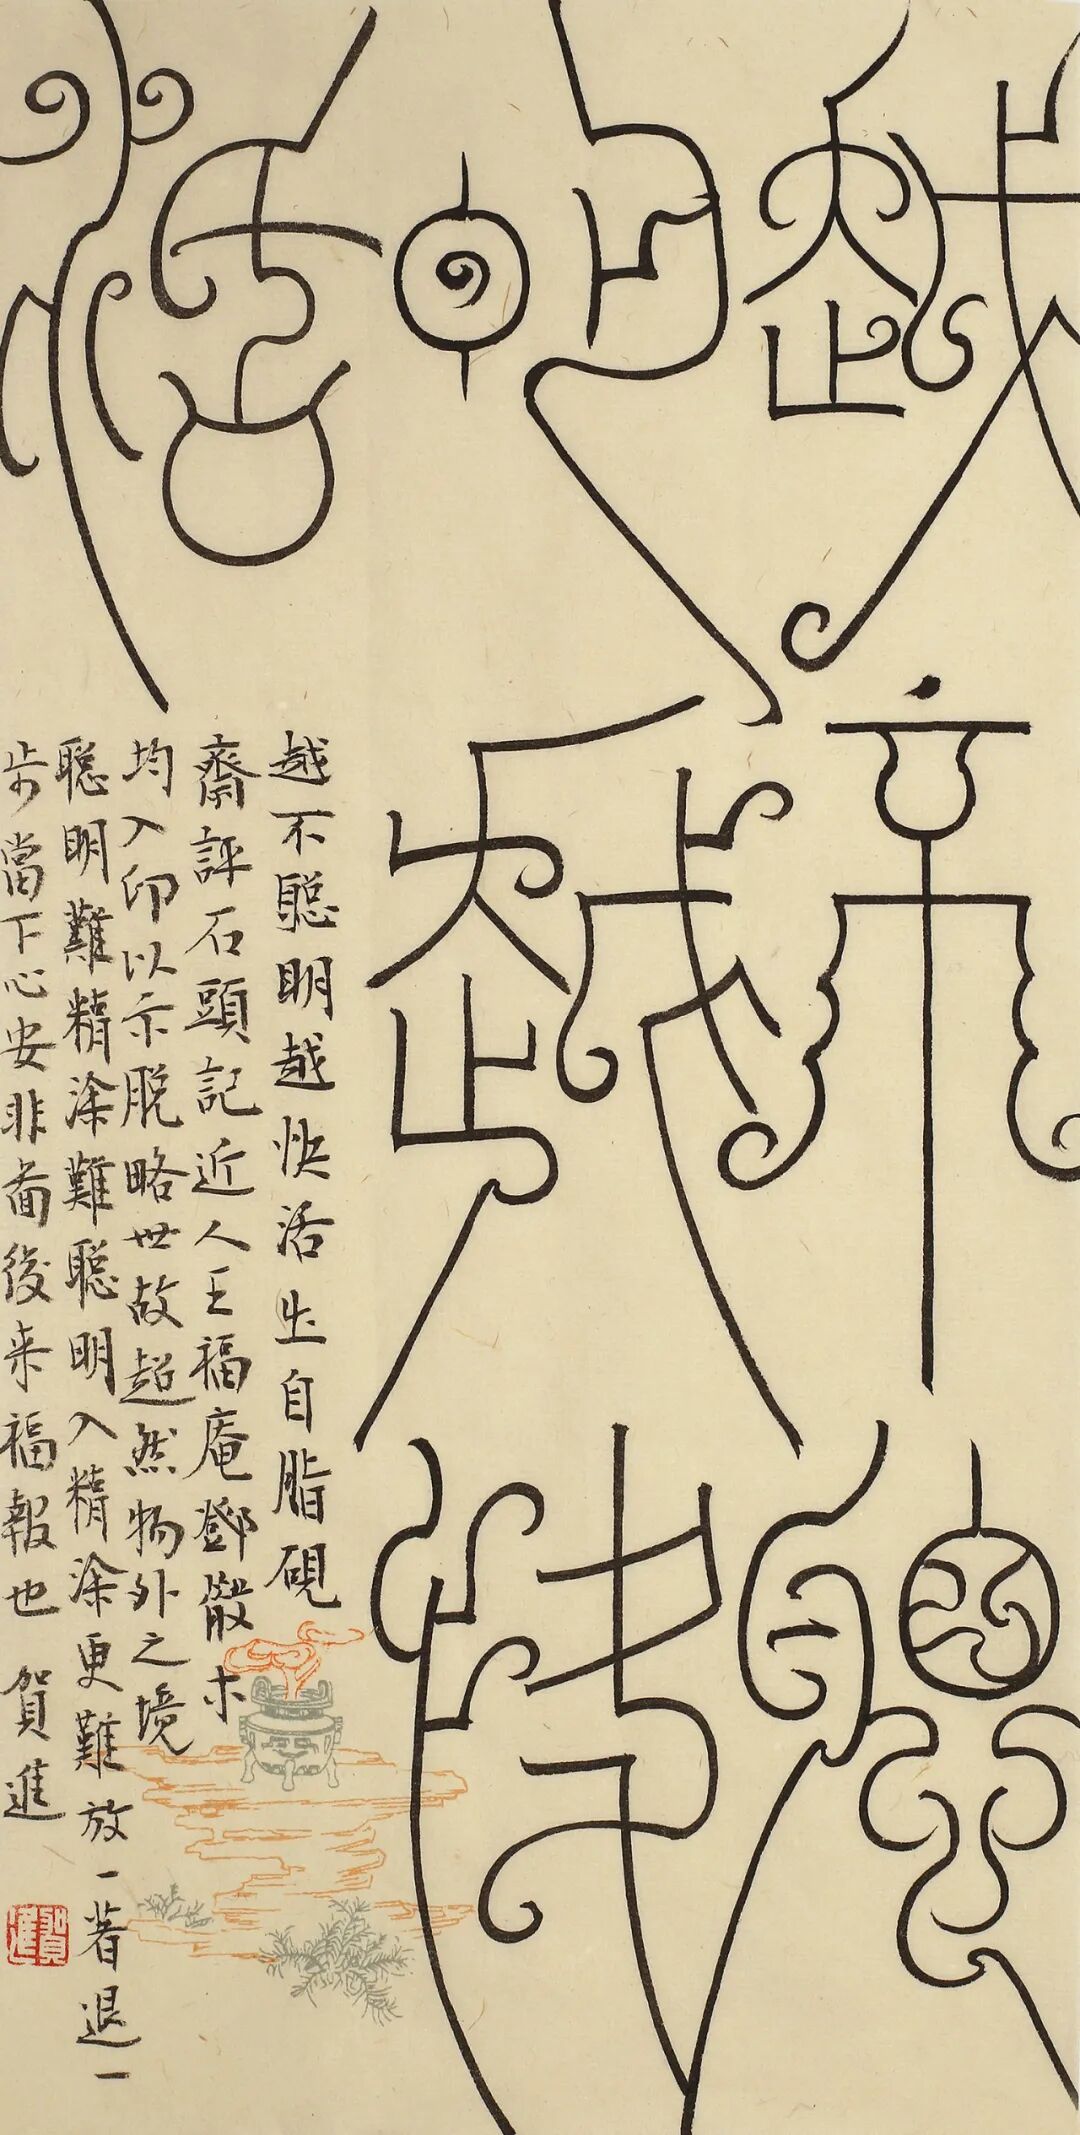 越不聰
明越快
活
越不聰明越快活出自脂硯
齋評石頭記近人王福庵鄧散木
均入印以示脫略世故超然物外之境
聰明難糊涂難聰明入糊涂更難放一著退一
步當下心安非啚後来福報也 賀進
賀進